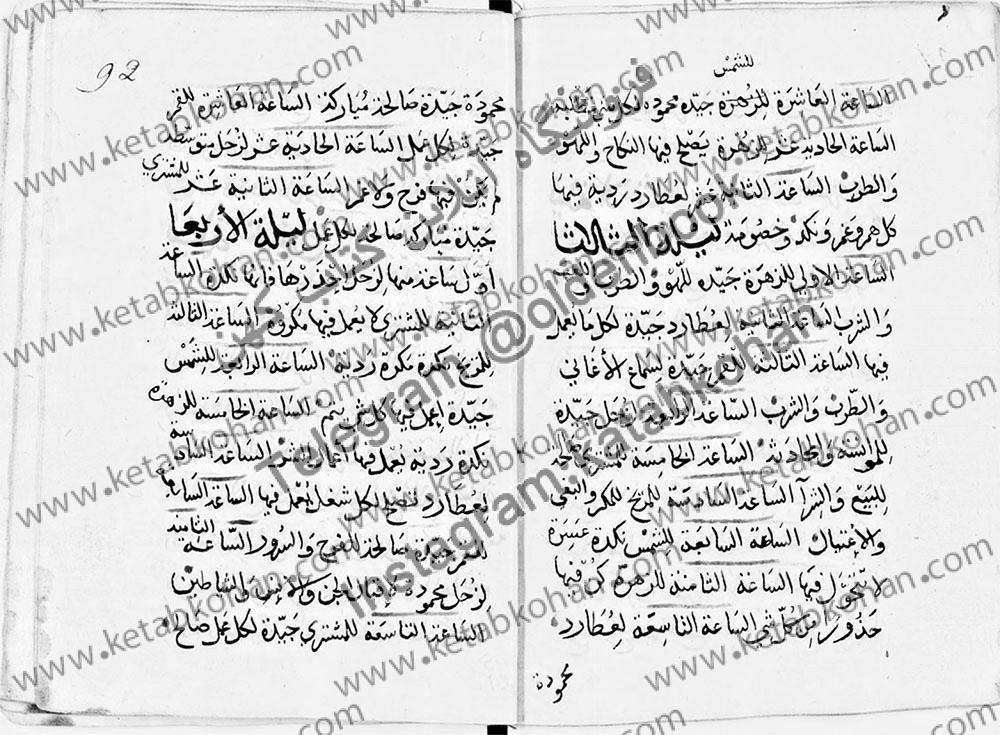 للشمس
الساعة العاشرة للزهرة جيده محموده لكل شي
الساعة الحادية عشر للزهرة يصلح فيها النكاح واللهو
والطرب الساعة الثانية عشر لعطارد ردية فيها
كل هم وغم ونكد وخصومة ليلة الثالثا
الساعة الاولى للزهرة جيده للهو والطرب واللعب
والشرب الساعة الثانية لعطارد جيدة لكل ما يعمل
فيها الساعة الثالثة للقمر جيدة لسماع الأغاني
والطرب والشرب الساعة الرابعة لزحل جيدة
للموانسة والمحادثة الساعة الخامسة للمشتري صالحة
للبيع والشرآ الساعة السادسة للمريخ للمكر والبغي
والاغتيال الساعة السابعة للشمس نكدة عسرة
لا تتحول فيها الساعة الثامنة للزهرة كن فيها
حذورا من كل شي الساعة التاسعة لعطارد
محمودة
92
محمودة جيدة صالحة مباركة الساعة العاشرة للقمر
جيدة لكل عمل الساعة الحادية عشر لزحل متوسطة
لم يكن فيها فرح ولا غم الساعة الثانية عشر للمشتري
جيدة مباركة صالحة لكل عمل ليلة الأربعا
أول ساعة منها لزحل احذرها فانها نكدة الساعة
الثانية للمشتري لا يعمل فيها مكروة الساعة الثالثة
للمريخ نكدة مكرة ردية الساعة الرابعة للشمس
جيدة اعمل فيها كل شي يتم الساعة الخامسة للزهرة
نكدة ردية يعمل فيها اعمال الساعة السادسة
لعطارد تصلح لكل شغل اعمل فيها الساعة السابعة
للقمر جيدة صالحة للفرح والسرور الساعة الثامنة
لزحل محمودة لاقبال الجن والانس والشياطين
الساعة التاسعة للمشتري جيدة لكل عمل صالح
www.ketabkohan.com
فروشگاه آنلاین کتاب کهن
Telegram: @oldembok
Instagram: ketabkohan